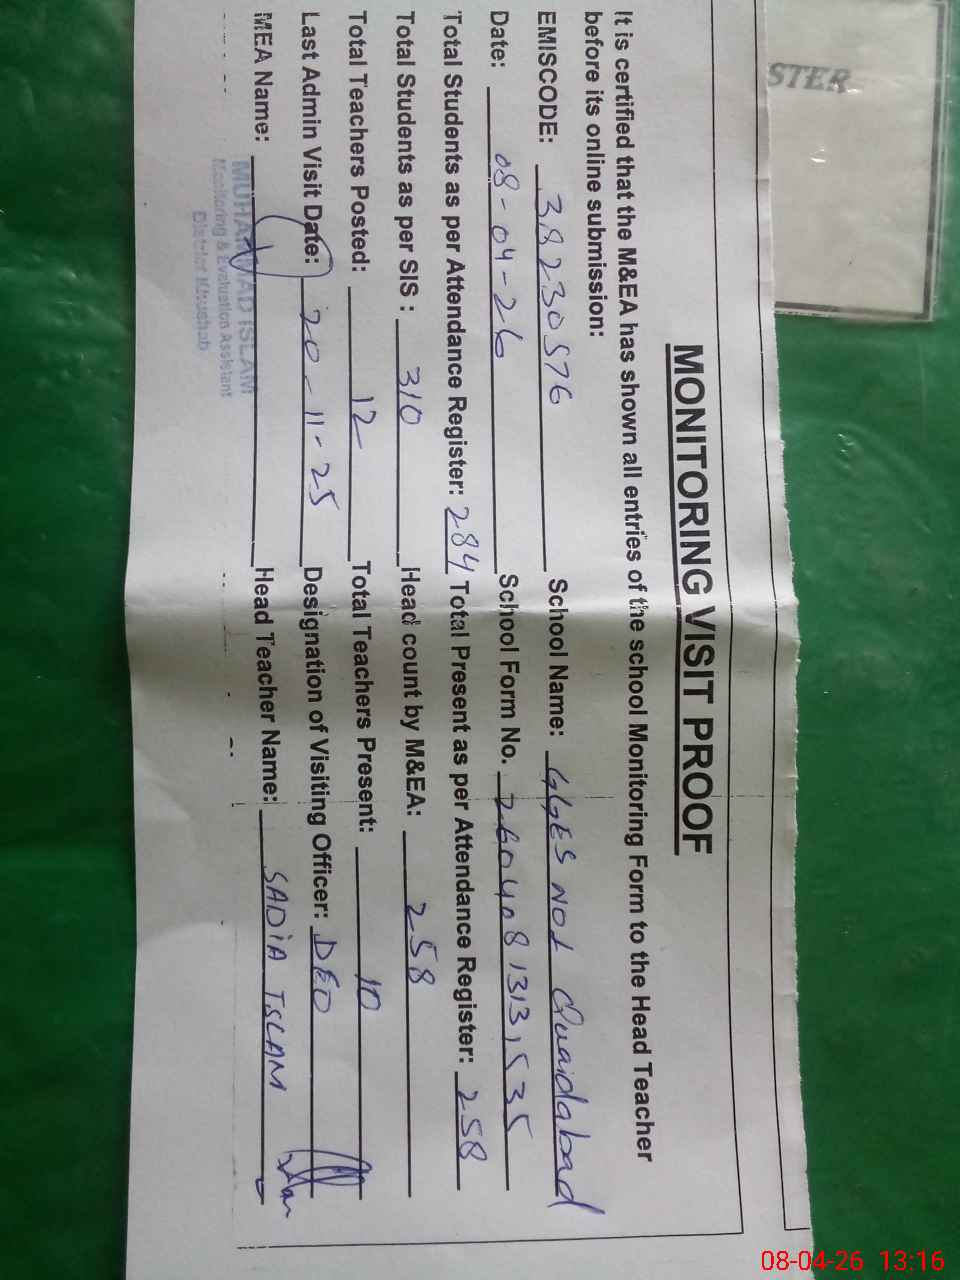 STER
MONITORING VISIT PROOF
It is certified that the M&EA has shown all entries of the school Monitoring Form to the Head Teacher
before its online submission:
EMISCODE: 38230576 School Name: GGES NO1 Quaidabad
Date: 08-04-26 School Form No. 2604081313,535
Total Students as per Attendance Register: 284 Total Present as per Attendance Register: 258
Total Students as per SIS : 310 Head count by M&EA: 258
Total Teachers Posted: 12 Total Teachers Present: 10
Last Admin Visit Date: 20-11-25 Designation of Visiting Officer: DEO
MEA Name: Head Teacher Name: SADIA ISLAM
MUHAMMAD ISLAM
Monitoring & Evaluation Assistant
District Khushab
08-04-26 13:16